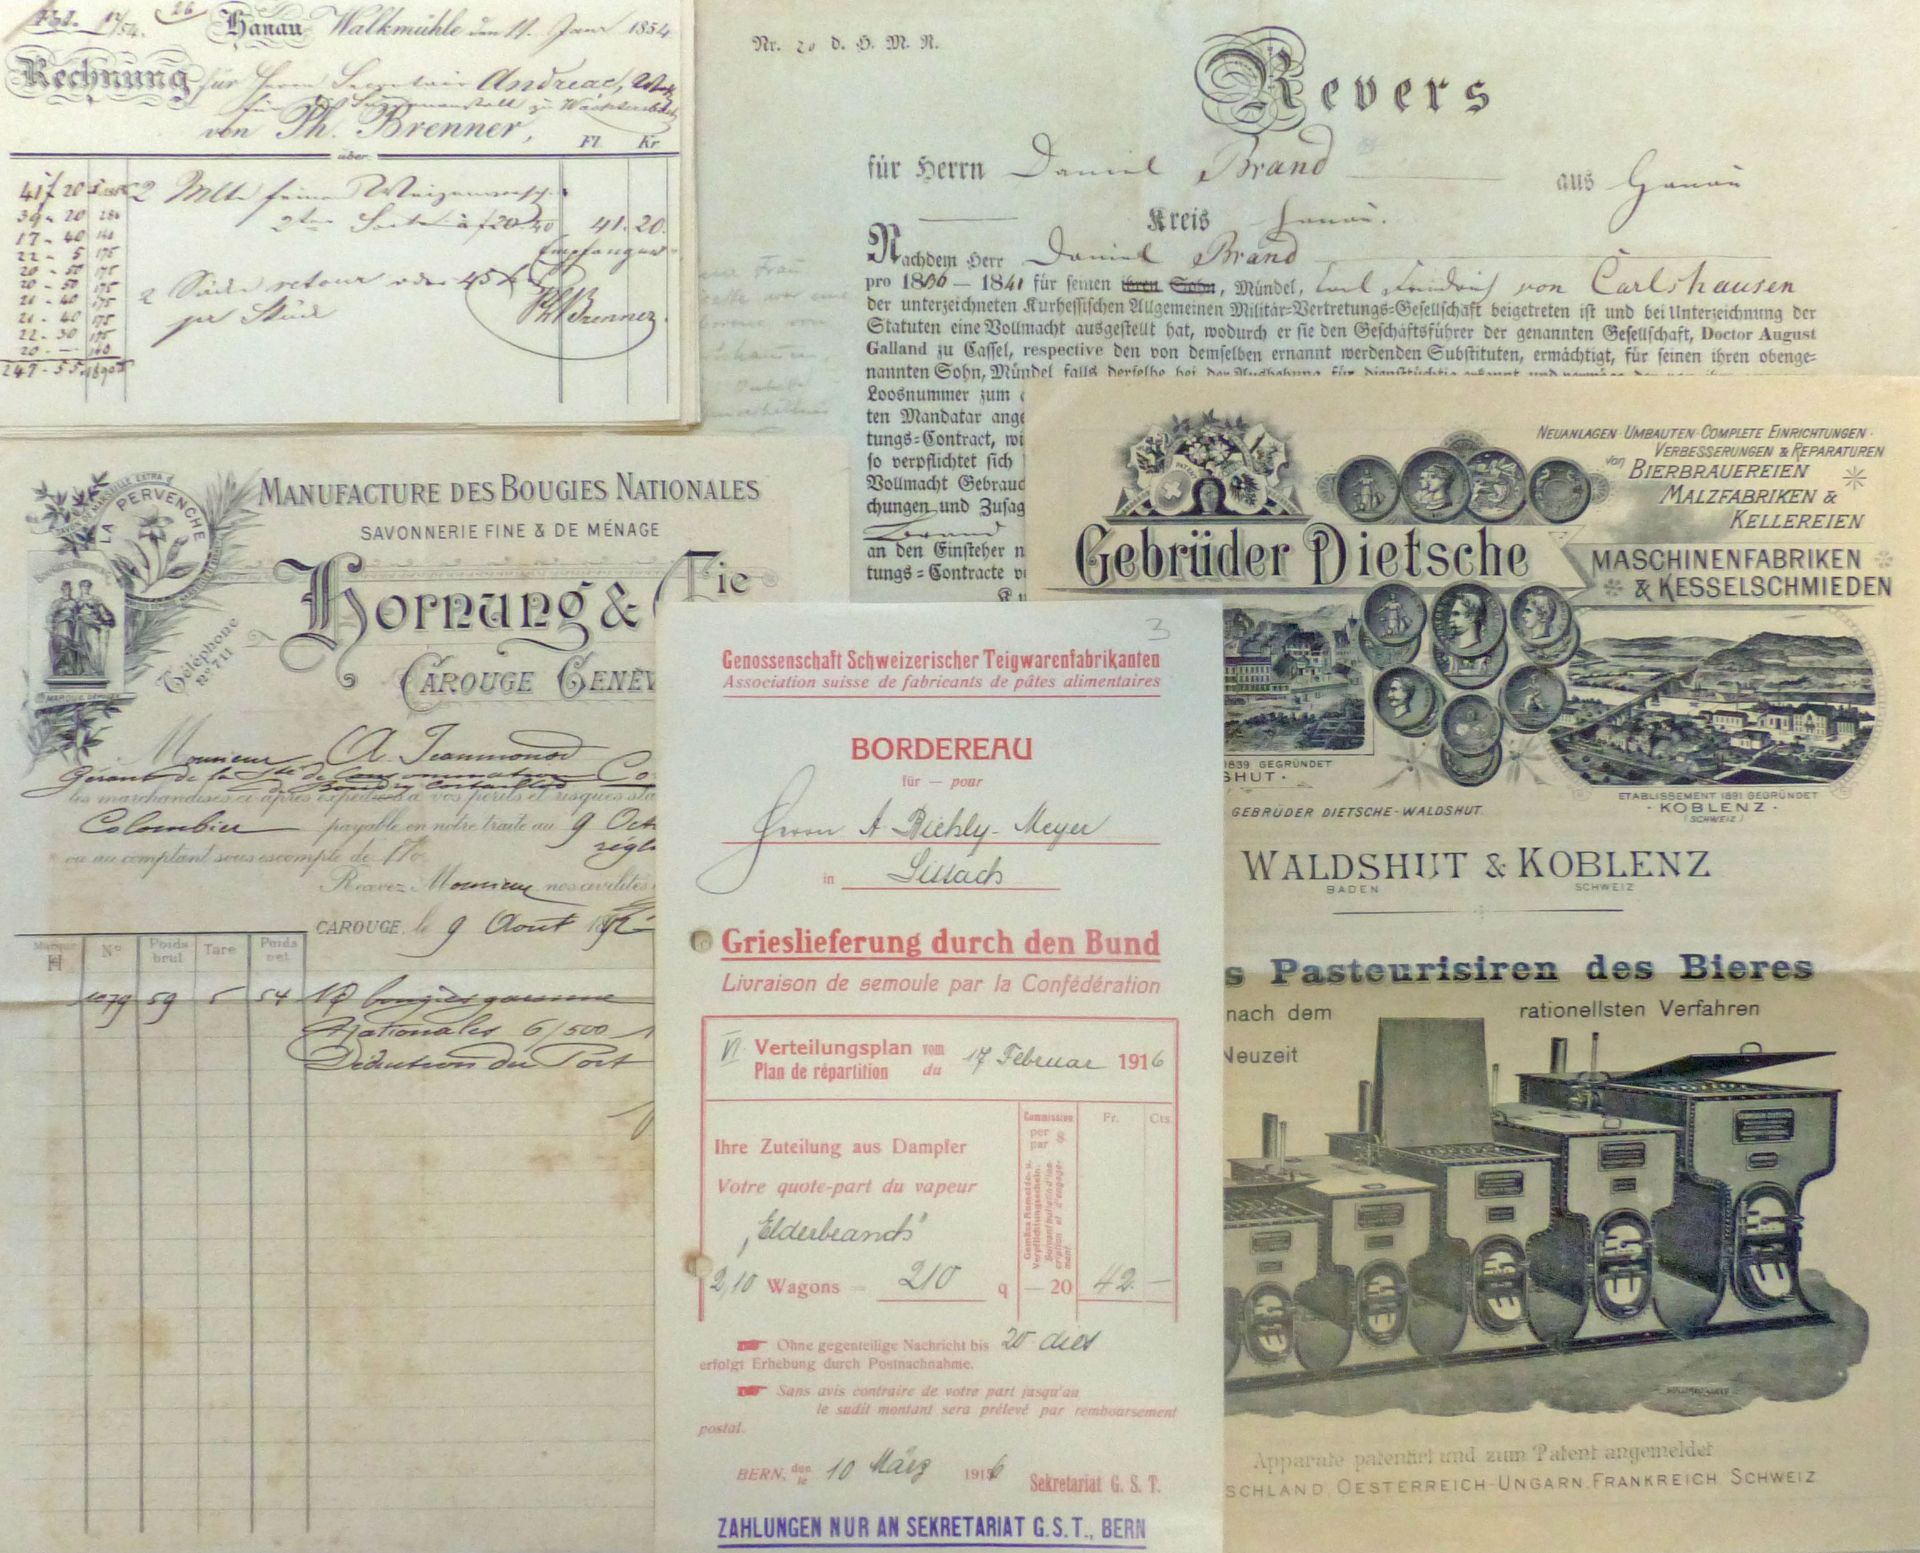 26
Hanau Walkmühle den 11. Janr 1854
Rechnung für Herrn Secretair Andreae,
zu Wächtersbach
von Ph. Brenner,
über
Fl. Kr
41 f 20
39 - 20
17 - 40
22 - 5 175
20 - 50 175
20 - 50 175
21 - 40 175
21 - 40 175
22 - 30 175
20 - — 160
247 - 55
2 Mltr feines
2ter Sorte à f 20. 40 41. 20.
Empfangen
2 Säcke retour oder 45 x
pr Stück
Ph Brenner.
Nr. 20 d. H. M. R.
Revers
für Herrn Daniel Brand aus Hanau
Kreis Hanau.
Nachdem Herr Daniel Brand
pro 1836 — 1841 für seinen ihren Sohn, Mündel, Carl Friedrich von Carlshausen
der unterzeichneten Kurhessischen Allgemeinen Militär-Vertretungs-Gesellschaft beigetreten ist und bei Unterzeichnung der
Statuten eine Vollmacht ausgestellt hat, wodurch er sie den Geschäftsführer der genannten Gesellschaft, Doctor August
Galland zu Cassel, respective den von demselben ernannt werdenden Substituten, ermächtigt, für seinen ihren obenge-
nannten Sohn, Mündel falls derselbe bei der Aushebung für diensttüchtig erkannt und
Loosnummer zum
ten Mandatar ange
tungs-Contract, wi
so verpflichtet sich
Vollmacht Gebrauc
chungen und Zusag
Brand
an den Einsteher n
tungs-Contracte v
MANUFACTURE DES BOUGIES NATIONALES
SAVONNERIE FINE & DE MÉNAGE
Hornung & Cie
CAROUGE GENÈV
SAVON DE MARSEILLE EXTRA
LA PERVENCHE
Téléphone
No 711
Monsieur A. Jeanmonod
Gérant de la Sté de Consommation
de Boudry Cortaillod
les marchandises ci après expédiées à vos périls et risques
Colombier payable en notre traite au 9 Oct
ou au comptant sous escompte de 1%
Recevez Monsieur nos civilités
CAROUGE, le 9 Août
Marque
H
No
Poids
brut
Tare
Poids
net
1079 59 5 54 bougies
Nationales 6/500
Déduction du Port
NEUANLAGEN · UMBAUTEN · COMPLETE EINRICHTUNGEN ·
VERBESSERUNGEN & REPARATUREN
von BIERBRAUEREIEN
MALZFABRIKEN &
KELLEREIEN
Gebrüder Dietsche
MASCHINENFABRIKEN
& KESSELSCHMIEDEN
1839 GEGRÜNDET
SHUT ·
ETABLISSEMENT 1891 GEGRÜNDET
· KOBLENZ ·
(SCHWEIZ)
GEBRÜDER DIETSCHE-WALDSHUT.
WALDSHUT & KOBLENZ
BADEN SCHWEIZ
s Pasteurisiren des Bieres
nach dem rationellsten Verfahren
Neuzeit
Apparate patentirt und zum Patent angemeldet
SCHLAND, OESTERREICH-UNGARN, FRANKREICH, SCHWEIZ
3
Genossenschaft Schweizerischer Teigwarenfabrikanten
Association suisse de fabricants de pâtes alimentaires
BORDEREAU
für — pour
Herrn A. Bickly-Meyer
in Sissach
Grieslieferung durch den Bund
Livraison de semoule par la Confédération
VI. Verteilungsplan vom 17 Februar 1916
Plan de répartition du
Commission
per
par q
Fr. Cts.
Gemäss Anmelde- u. Verpflichtungsschein.
Suivant bulletin d'inscription et d'engagement.
Ihre Zuteilung aus Dampfer
Votre quote-part du vapeur
„Elderbranch"
2,10 Wagons = 210 q — 20 42.—
Ohne gegenteilige Nachricht bis 20 dies
erfolgt Erhebung durch Postnachnahme.
Sans avis contraire de votre part jusqu'au
le sudit montant sera prélevé par remboursement
postal.
BERN, den
le 10 März 1916
Sekretariat G. S. T.
ZAHLUNGEN NUR AN SEKRETARIAT G.S.T., BERN